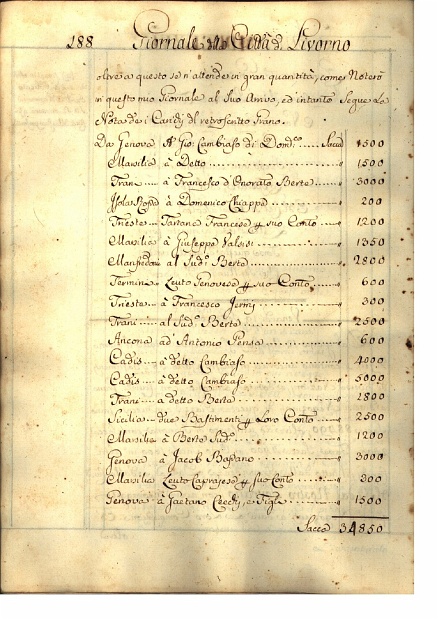 188 Giornale Città di Livorno
oltre a questo se n'attende in gran quantità, come Noterò
in questo mio Giornale al Suo Arrivo, ed intanto Segue La
Nota de i Carichi del retroscritto Grano.
Da Genova A Gio: Cambiaso di Dom.co ..... Sacca 1500
Marsilia à Detto ..... " 1500
Trani .... à Francesco d'Onorato Berte ..... " 3000
Isola Rossa à Domenico Chiappe ..... " 200
Trieste .. Tartana Francese p suo Conto .... " 1200
Marsilia à Giuseppe ..... " 1350
Manfredonia al Sud.o Berte ..... " 2800
Termina Leuto Genovese p suo Conto .... " 600
Trieste .. à Francesco Jermy ..... " 300
Trani .... al Sud.o Berte ..... " 2500
Ancona ad Antonio Pensa ..... " 600
Cadis .... à detto Cambiaso ..... " 4000
Cadis .... à detto Cambiaso ..... " 5000
Trani .... à detto Berte ..... " 2800
Sicilia ... due Bastimenti p Loro Conto .... " 2500
Marsilia à Berte Sud.o ..... " 1200
Genova à Jacob Bassano ..... " 3000
Marsilia Leuto Caprajese p suo Conto .... " 300
Genova à Gaetano e Figli ..... " 1500
Sacca 34850